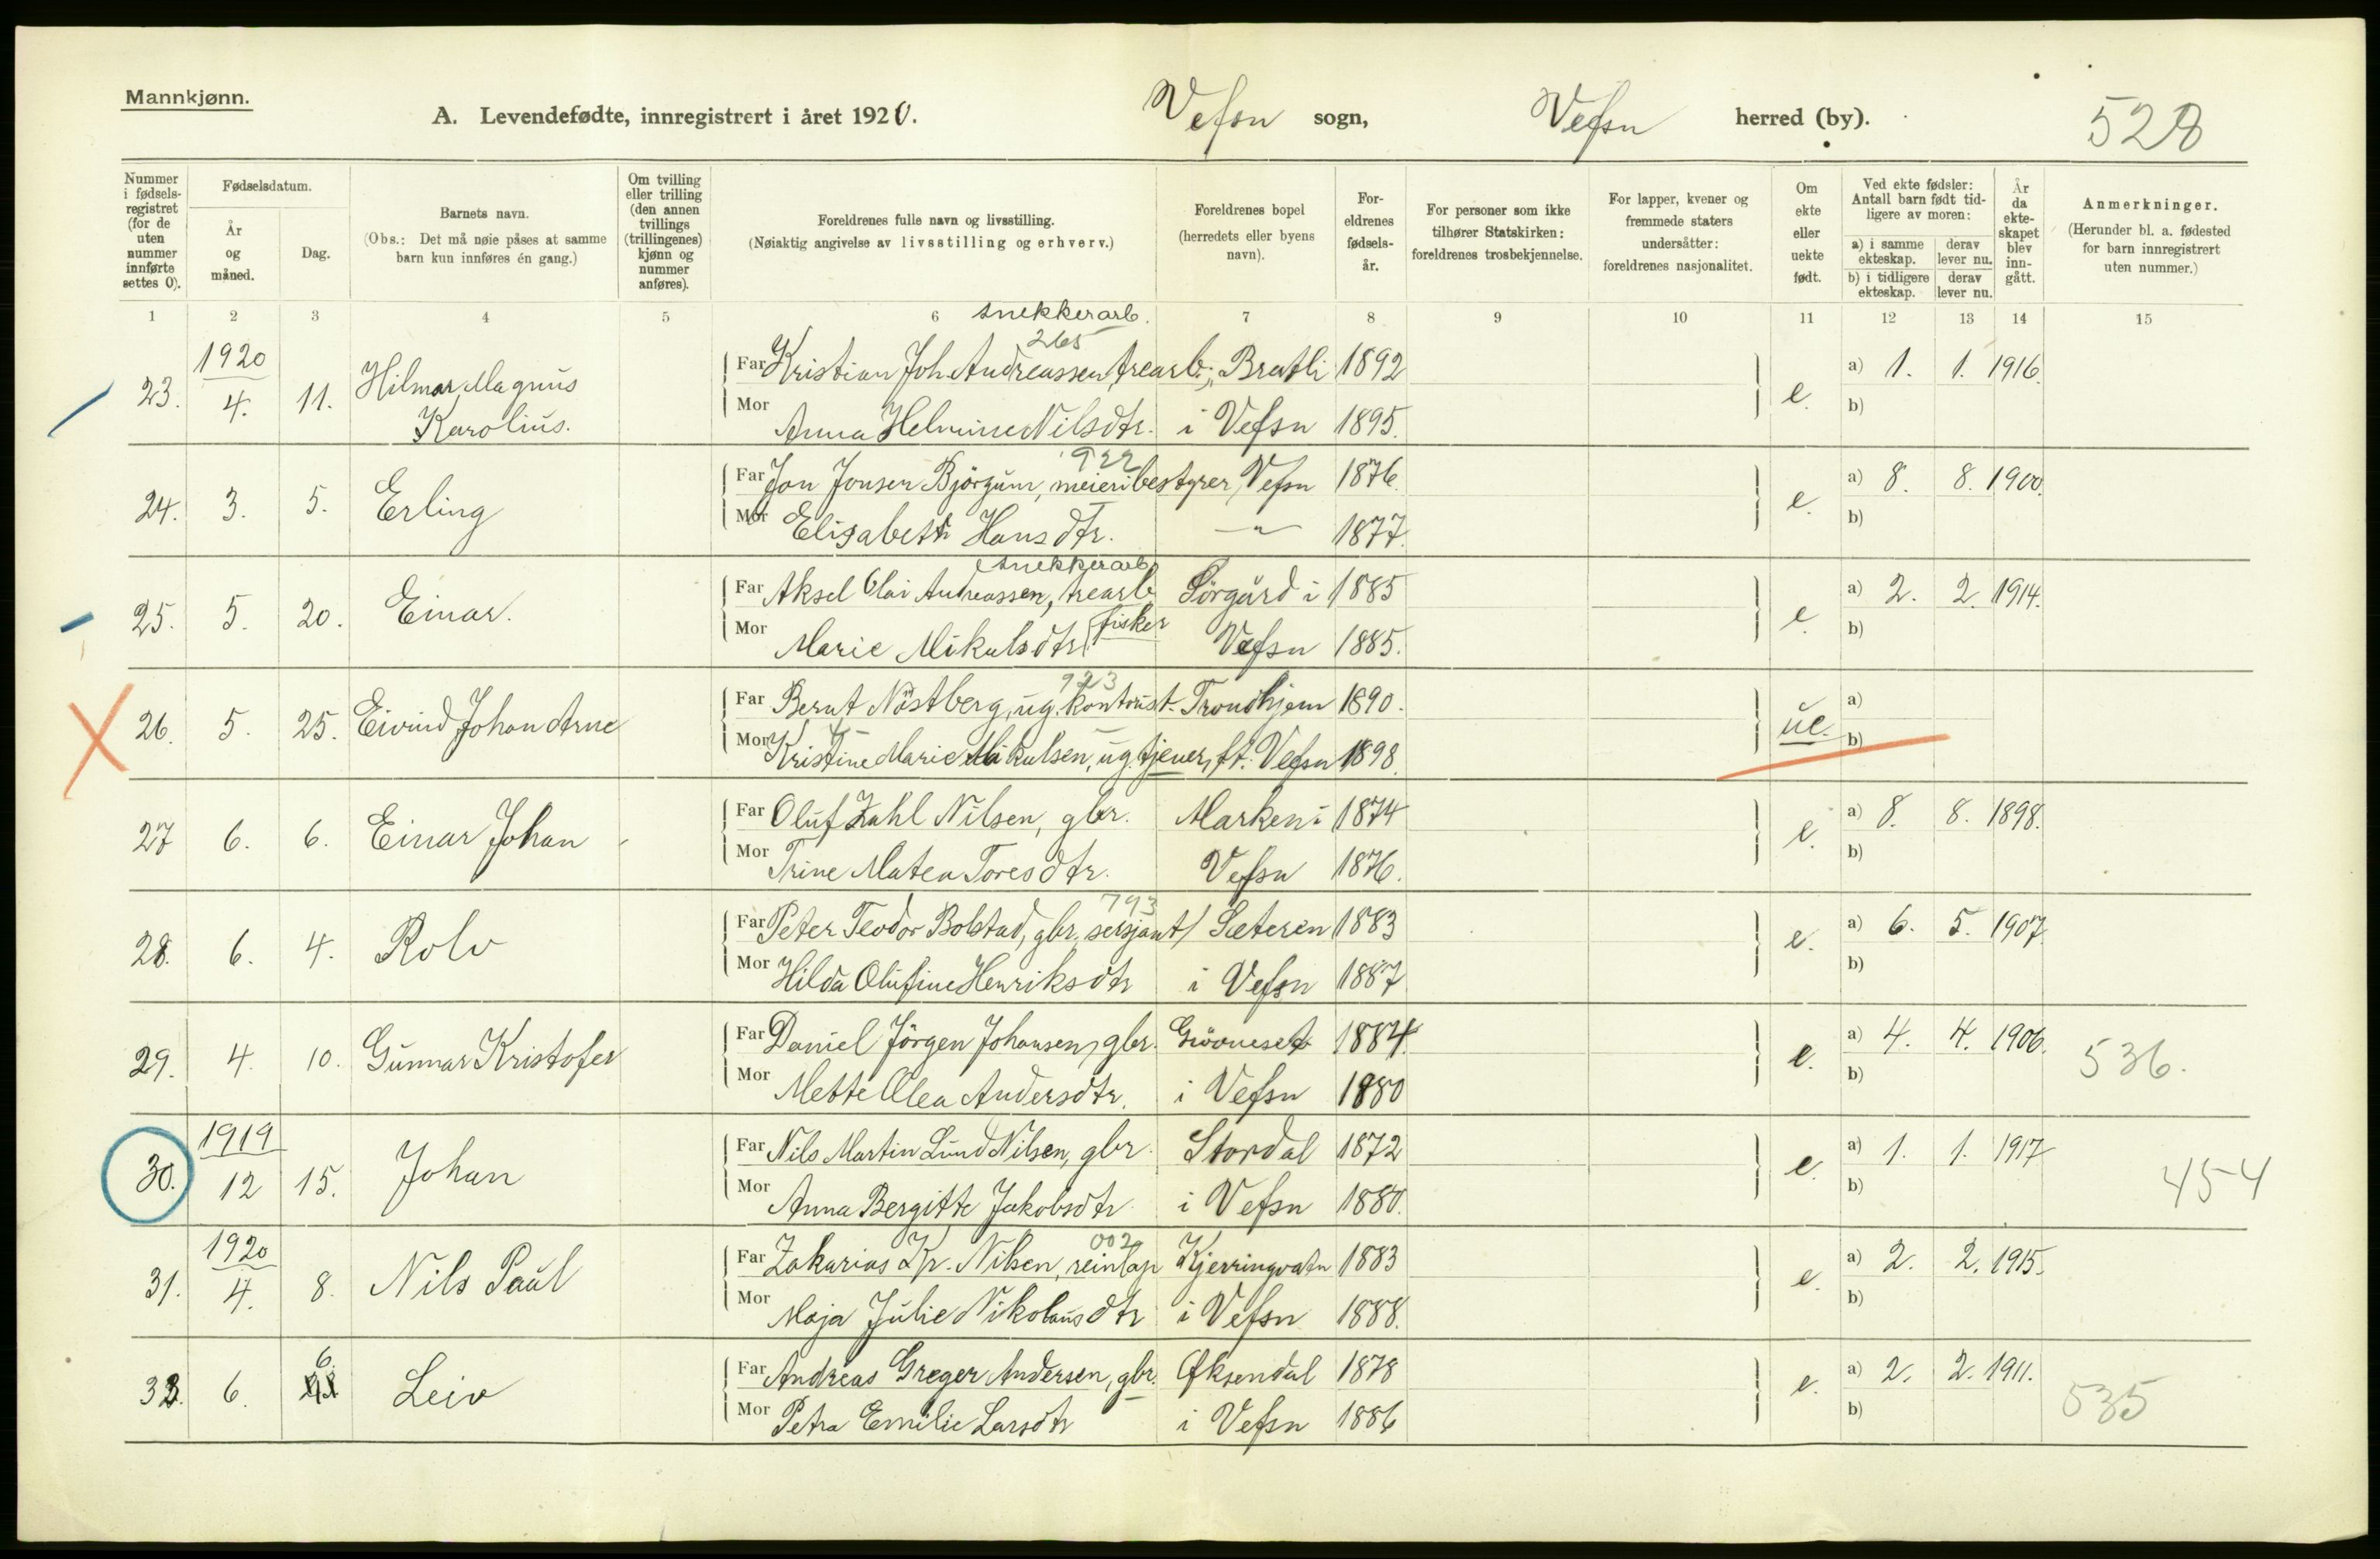 Mannkjønn.
A. Levendefødte, innregistrert i året 1920. Vefsn sogn, Vefsn herred (by). 528
Nummer i fødselsregistret (for de uten nummer innførte settes 0).
Fødselsdatum.
År og måned.
Dag.
Barnets navn.
(Obs.: Det må nøie påses at samme barn kun innføres én gang.)
Om tvilling eller trilling (den annen tvillings (trillingenes) kjønn og nummer anføres).
Foreldrenes fulle navn og livsstilling.
(Nøiaktig angivelse av livsstilling og erhverv.)
Foreldrenes bopel (herredets eller byens navn).
Foreldrenes fødselsår.
For personer som ikke tilhører Statskirken: foreldrenes trosbekjennelse.
For lapper, kvener og fremmede staters undersåtter: foreldrenes nasjonalitet.
Om ekte eller uekte født.
Ved ekte fødsler: Antall barn født tidligere av moren:
a) i samme ekteskap. derav lever nu.
b) i tidligere ekteskap. derav lever nu.
År da ekteskapet blev inngått.
Anmerkninger.
(Herunder bl. a. fødested for barn innregistrert uten nummer.)
1 2 3 4 5 6 7 8 9 10 11 12 13 14 15
snekkerarb.
265
1920
23. 4. 11. Hilmar Magnus Karolius.
Far Kristian Joh. Andreassen, trearb.; Bratli 1892 e. a) 1. 1. 1916.
Mor Anna Helmine Nilsdtr. i Vefsn 1895. b)
922
24. 3. 5. Erling
Far Jon Jonsen Björgum, meieribestyrer, Vefsn 1876. e. a) 8. 8. 1900.
Mor Elisabeth Hansdtr. -"- 1877. b)
snekkerarb
25. 5. 20. Einar.
Far Aksel Olai Andreassen, trearb Sörgård i 1885 e. a) 2. 2. 1914.
fisker
Mor Marie Mikalsdtr. Vefsn 1885. b)
923
26. 5. 25. Eivind Johan Arne
Far Bernt Nöstberg, ug. kontorist. Trondhjem 1890. ue. a)
Mor Kristine Marie Mikalsen, ug. tjener, ft. Vefsn 1898. b)
27 6. 6. Einar Johan
Far Oluf Zahl Nilsen, gbr. Marken i 1874 e. a) 8. 8. 1898.
Mor Trine Matea Toresdtr. Vefsn 1876. b)
793
28. 6. 4. Rolv
Far Peter Teodor Bolstad, gbr. sersjant/ Sæteren 1883 e. a) 6. 5. 1907.
Mor Hilda Olufine Henriksdtr i Vefsn 1887 b)
29. 4. 10. Gunnar Kristofer
Far Daniel Jörgen Johansen, gbr. 1884. e. a) 4. 4. 1906. 536.
Mor Mette Olea Andersdtr. i Vefsn 1880 b)
1919
30. 12 15. Johan
Far Nils Martin Lund Nilsen, gbr. Stordal 1872 e. a) 1. 1. 1917 454
Mor Anna Bergitte Jakobsdtr i Vefsn 1880. b)
1920
002
31. 4. 8. Nils Paul
Far Zakarias Kr. Nilsen, reinlap Kjerringvatn 1883 e. a) 2. 2. 1915.
Mor Maja Julie Nikolausdtr i Vefsn 1888. b)
32. 6. 6. Leiv
Far Andreas Greger Andersen, gbr. Øksendal 1878 e. a) 2. 2. 1911. 535
Mor Petra Emilie Larsdtr i Vefsn 1886 b)